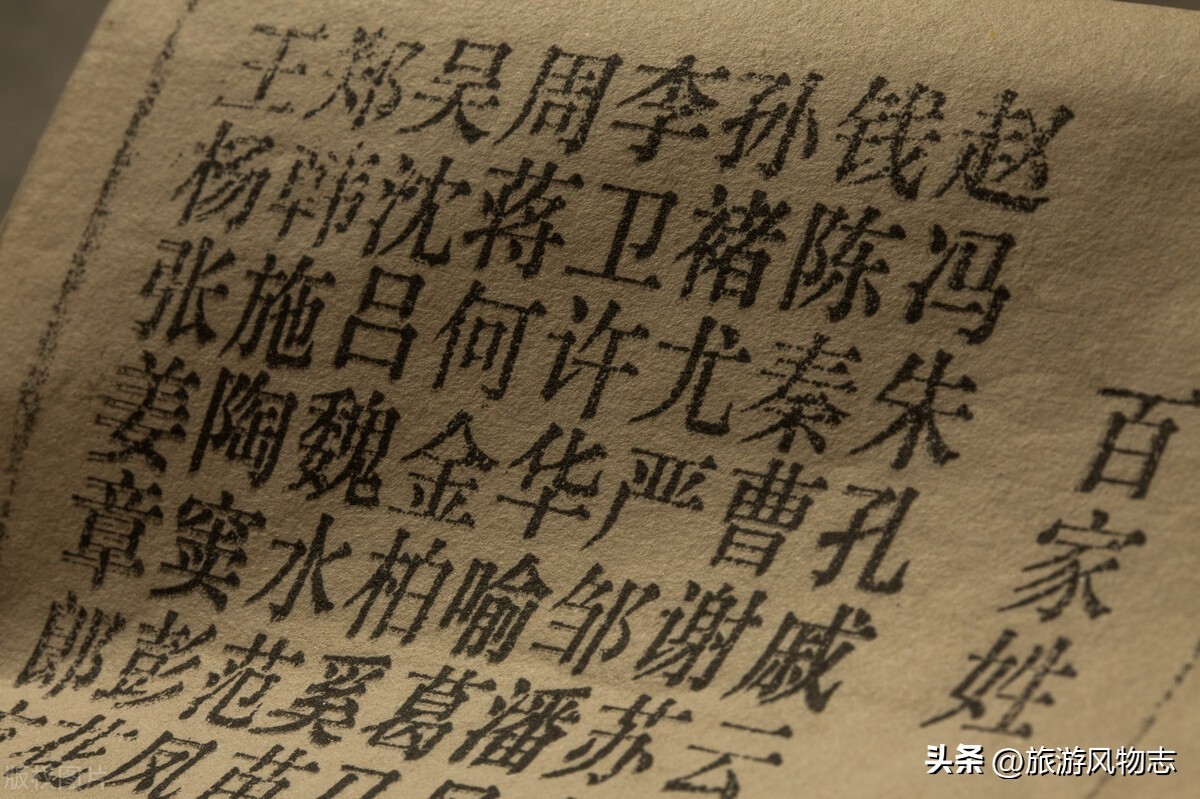 百家姓
赵钱孙李周吴郑王
冯陈褚卫蒋沈韩杨
朱秦尤许何吕施张
孔曹严华金魏陶姜
戚谢邹喻柏水窦章
云苏潘葛奚范彭郎
苗凤花
版权图片
头条 @旅游风物志